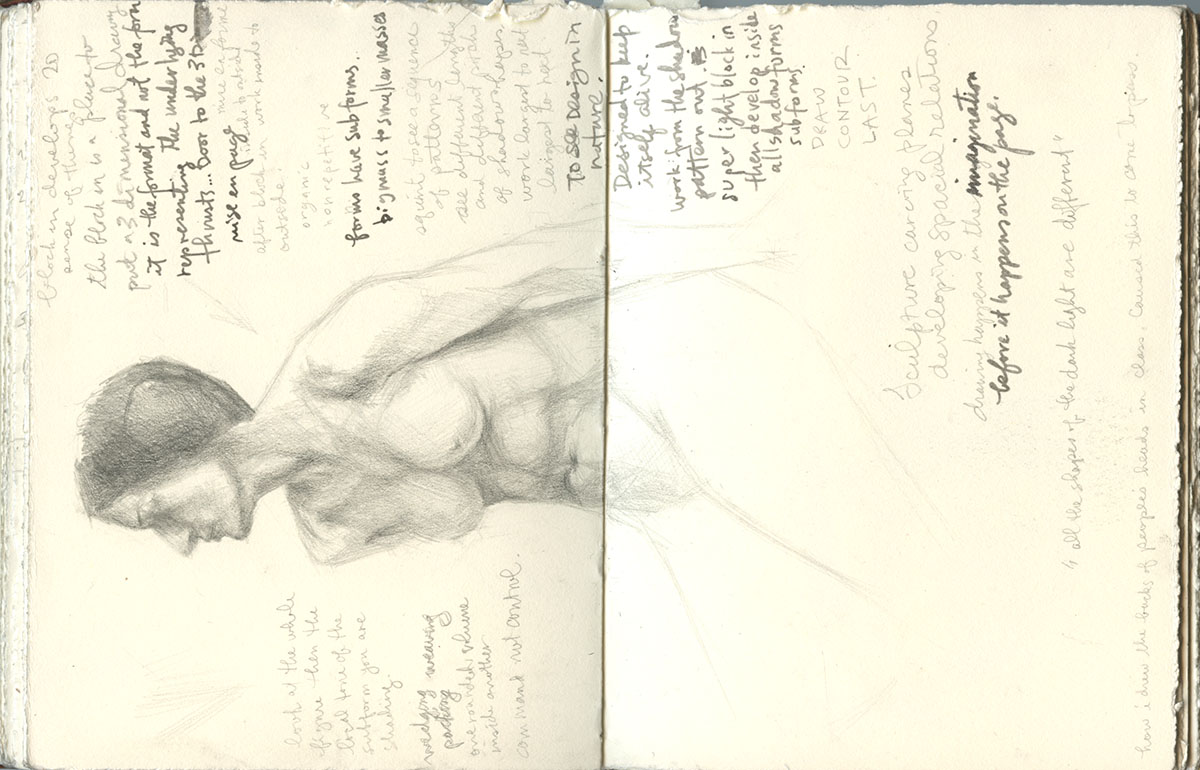 block in develops 2D
sense of things
the block in is a place to
put a 3 dimensional drawing
it is the format and not the form
representing the underlying
thrusts... Door to the 3D
mise en page
after block in work inside to
outside.
organic
non repetitive
forms have subforms..
big mass to smaller masses
squint to see a sequence
of patterns
see different lengths
and different
of shadow shapes.
work large to next
largest to next
TO SEE DESIGN IN
nature.
Designed to keep
itself alive.
work from the shadow
pattern out.
super light block in
then develop inside
all shadow forms
subforms.
DRAW
CONTOUR
LAST.
Sculpture carving planes
developing spacial relations
drawing happens in the imagination
before it happens on the page.
"all the shapes of the dark light are different"
how i drew the backs of people's heads in class. Caused this to come to pass
look at the whole
figure then the
local tone of the
subform you are
shading.
wedging weaving
packing
one rounded volume
inside another
command not control